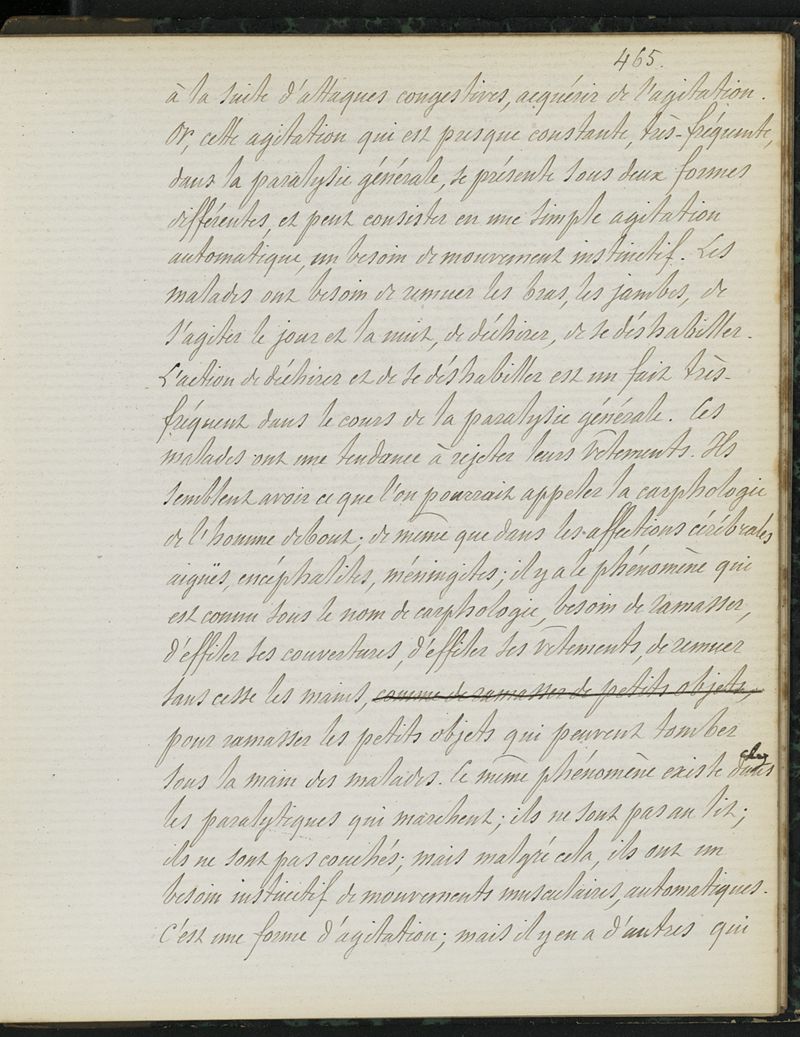 465.
à la suite d'attaques congestives, acquérir de l'agitation.
Or, cette agitation qui est presque constante, très-fréquente,
dans la paralysie générale, se présente sous deux formes
différentes, et peut consister en une simple agitation
automatique, un besoin de mouvement instinctif. Les
malades ont besoin de remuer les bras, les jambes, de
s'agiter le jour et la nuit, de déchirer, de se déshabiller.
L'action de déchirer et de se déshabiller est un fait très-
fréquent dans le cours de la paralysie générale. Ces
malades ont une tendance à rejeter leurs vêtements. Ils
semblent avoir ce que l'on pourrait appeler la carphologie
de l'homme debout; de même que dans les affections cérébrales
aiguës, encéphalites, méningites; il y a le phénomène qui
est connu sous le nom de carphologie, besoin de ramasser,
d'effiler ses couvertures, d'effiler ses vêtements, de remuer
sans cesse les mains, comme de ramasser de petits objets,
pour ramasser les petits objets qui peuvent tomber
sous la main des malades. Ce même phénomène existe dans chez
les paralytiques qui marchent; ils ne sont pas au lit;
ils ne sont pas couchés; mais malgré cela, ils ont un
besoin instinctif de mouvements musculaires, automatiques.
C'est une forme d'agitation; mais il y en a d'autres qui